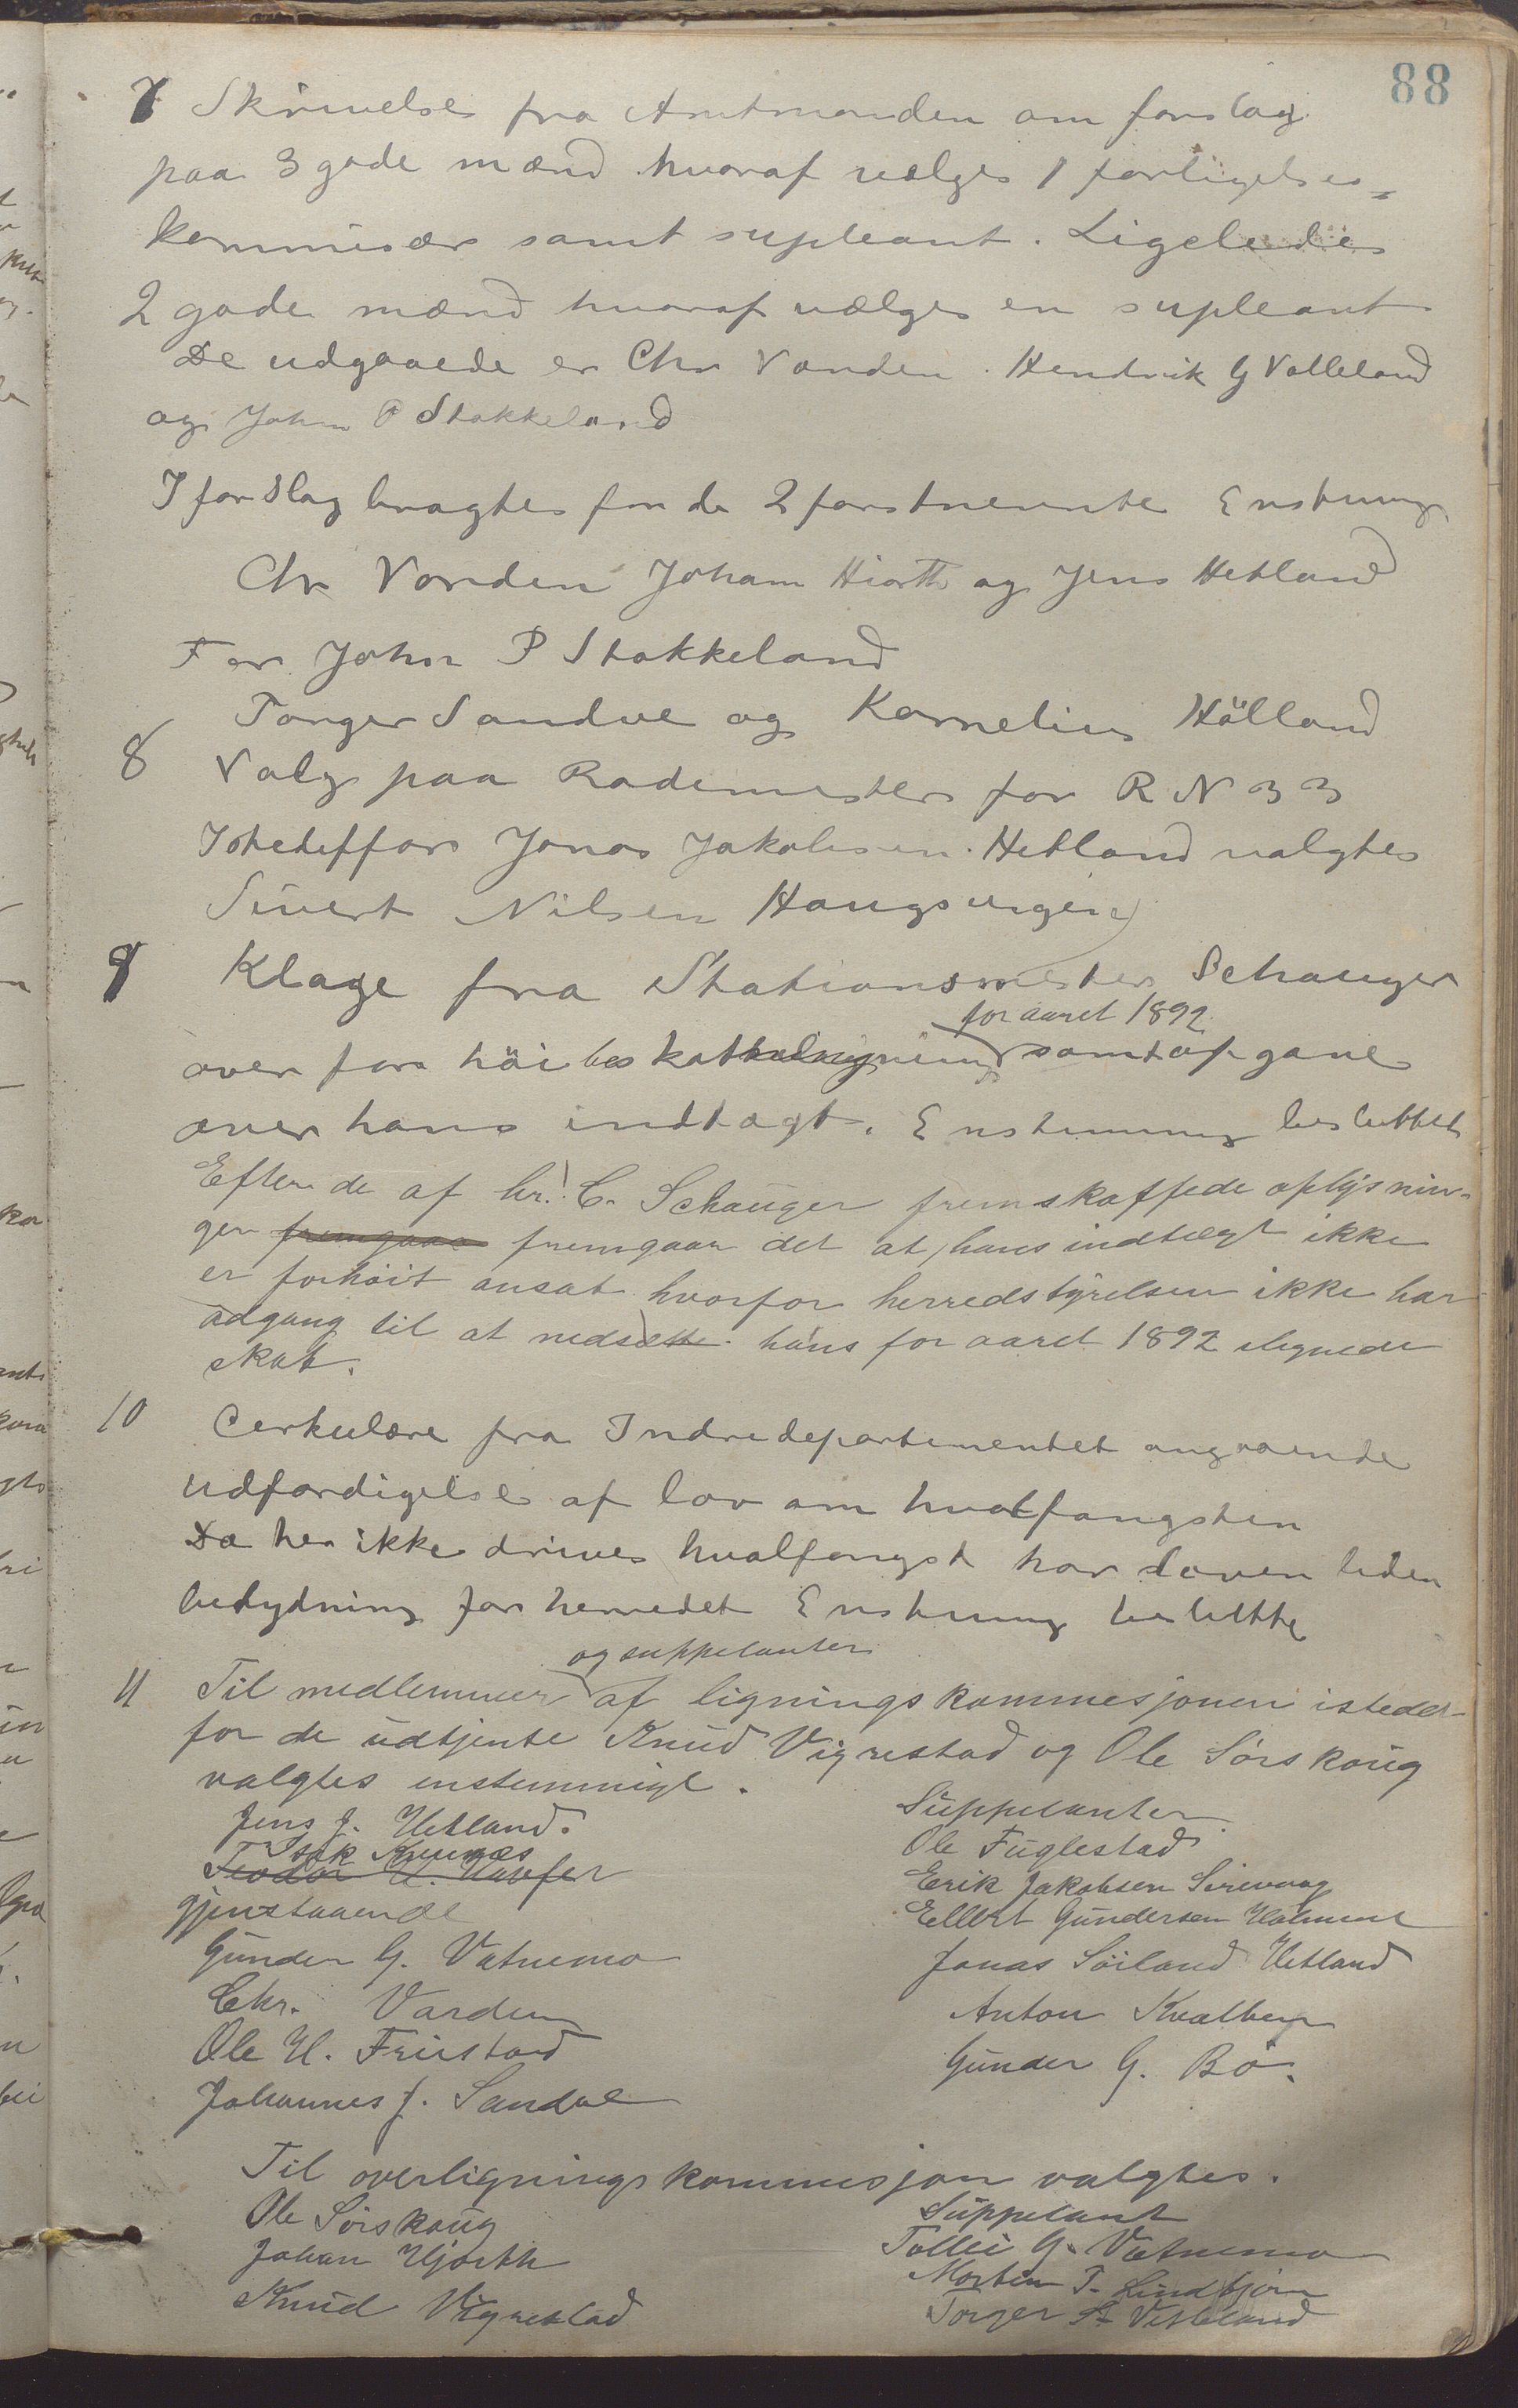 88
7 Skrivelse fra Amtmanden om forslag
paa 3 gode mænd hvoraf vælges 1 forligelses=
kommisær samt supleant. Ligeledes
2 gode mænd hvoraf vælges en supleant
De udgaaede er Chr Varden. Hendrik G Valleland
og John P Stokkeland
I forslag bragtes for de 2 førstnevnte Enstemig
Chr Varden Johan Hiorth og Jens Hetland
For John P Stokkeland
Torger Sandve og Kornelius Hölland
8 Valg paa Rodemester for R N 33
Istedetfor Jonas Jakobsen Hetland valgtes
Sivert Nilsen Haugsvegen
9 Klage fra Stationsmester Schauger
for aaret 1892
over for høi beskatning samt opgave
over hans indtægt. Enstemmig besluttet
Efter de af hr. C. Schauger fremskaffede oplysnin-
ger fremgaar fremgaar det at hans indtægt ikke
er forhøit ansat hvorfor herredstyrelsen ikke har
adgang til at nedsætte hans for aaret 1892 ilignede
skat.
10 Cerkulære fra Indredepartementet angaaende
udfærdigelse af lov om hvalfangsten
Da her ikke drives hvalfangst har loven liden
betydning for herredet Enstemmig beslutte
og suppelanter
11 Til medlemmer af ligningskommesjonen istedet-
for de udtjente Knud Vigrestad og Ole Sørskoug
valgtes enstemmigt.
Jens J. Hetland.
Isak Kvumæs
Teodor H.
gjenstaaende
Gunder G. Vatnemo
Chr. Varden
Ole H. Frustad
Johannes J. Sandve
Suppelanter
Ole Fuglestad
Erik Jakobsen Sirevaag
Ellert Gundersen
Jonas Söiland Hetland
Anton Kvalberg
Gunder G. Bö.
Til overligningskommesjon valgtes.
Ole Sørskoug
Johan Hjorth
Knud Vigrestad
Suppelant
Tollei G. Vatnemo
Morten T. Lindtjørn
Torger S. Vetteland